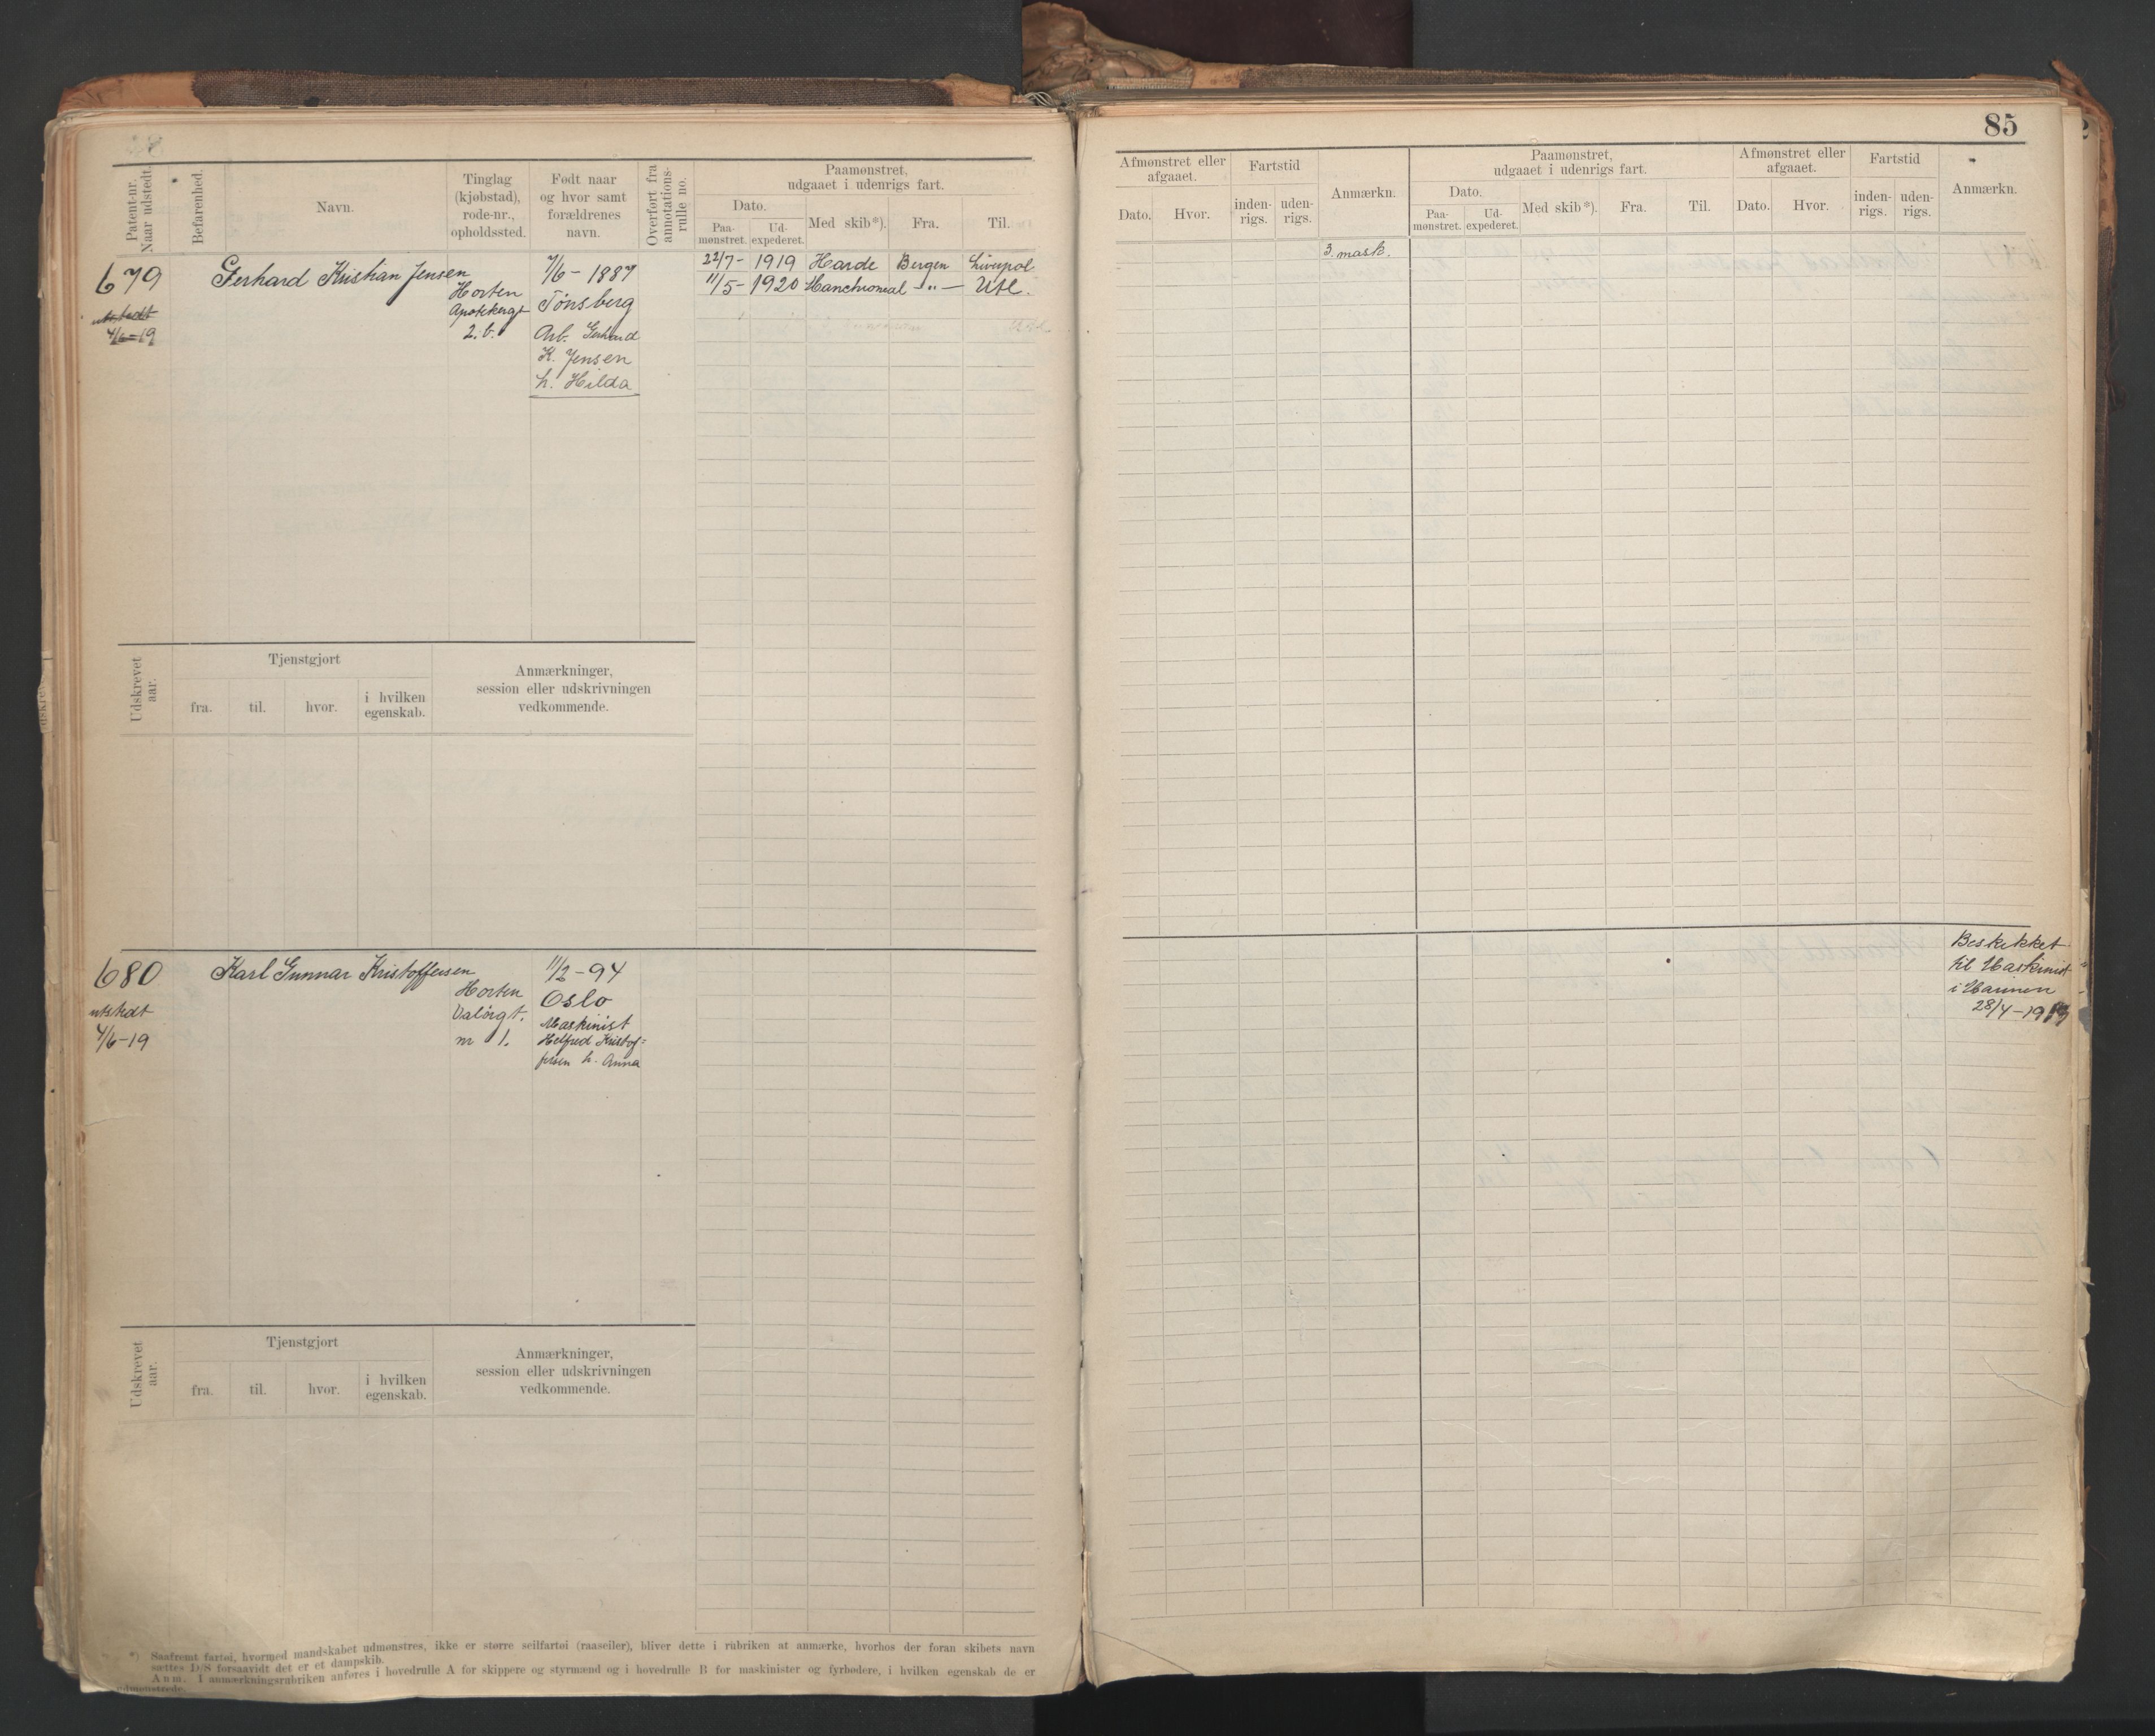 85
Patent-nr.
Naar udstedt.
Befarenhed.
Navn.
Tinglag
(kjøbstad),
rode-nr.,
opholdssted.
Født naar
og hvor samt
forældrenes
navn.
Overført fra
annotations-
rulle no.
Paamønstret,
udgaaet i udenrigs fart.
Dato.
Paa-
mønstret.
Ud-
expederet.
Med skib*).
Fra.
Til.
679
utstedt
4/6-19
Gerhard Kristian Jensen
Horten
Apotekergt
2. b.
7/6 - 1887
Tönsberg
Arb. Gerhard
K. Jensen
h. Hilda
22/7 - 1919 Harde Bergen Liverpol
11/5 - 1920 Manchioneal -"- Utl.
Udskrevet
aar.
Tjenstgjort
fra.
til.
hvor.
i hvilken
egenskab.
Anmærkninger,
session eller udskrivningen
vedkommende.
680
utstedt
4/6-19
Karl Gunnar Kristoffersen
Horten
Valörgt.
nr 1.
11/2 - 94
Oslo
Maskinist
Helfred Kristof=
fersen h. Anna
Udskrevet
aar.
Tjenstgjort
fra.
til.
hvor.
i hvilken
egenskab.
Anmærkninger,
session eller udskrivningen
vedkommende.
*) Saafremt fartøi, hvormed mandskabet udmønstres, ikke er større seilfartøi (raaseiler), bliver dette i rubriken at anmærke, hvorhos der foran skibets navn
sættes D/S forsaavidt det er et dampskib.
Anm. I anmærkningsrubriken anføres i hovedrulle A for skippere og styrmænd og i hovedrulle B for maskinister og fyrbødere, i hvilken egenskab de er
udmønstrede.
Afmønstret eller
afgaaet.
Dato.
Hvor.
Fartstid
inden-
rigs.
uden-
rigs.
Anmærkn.
Paamønstret,
udgaaet i udenrigs fart.
Dato.
Paa-
mønstret.
Ud-
expederet.
Med skib*).
Fra.
Til.
Afmønstret eller
afgaaet.
Dato.
Hvor.
Fartstid
inden-
rigs.
uden-
rigs.
Anmærkn.
3. mask.
Beskikket
til Maskinist
i Marinen
28/4-1919